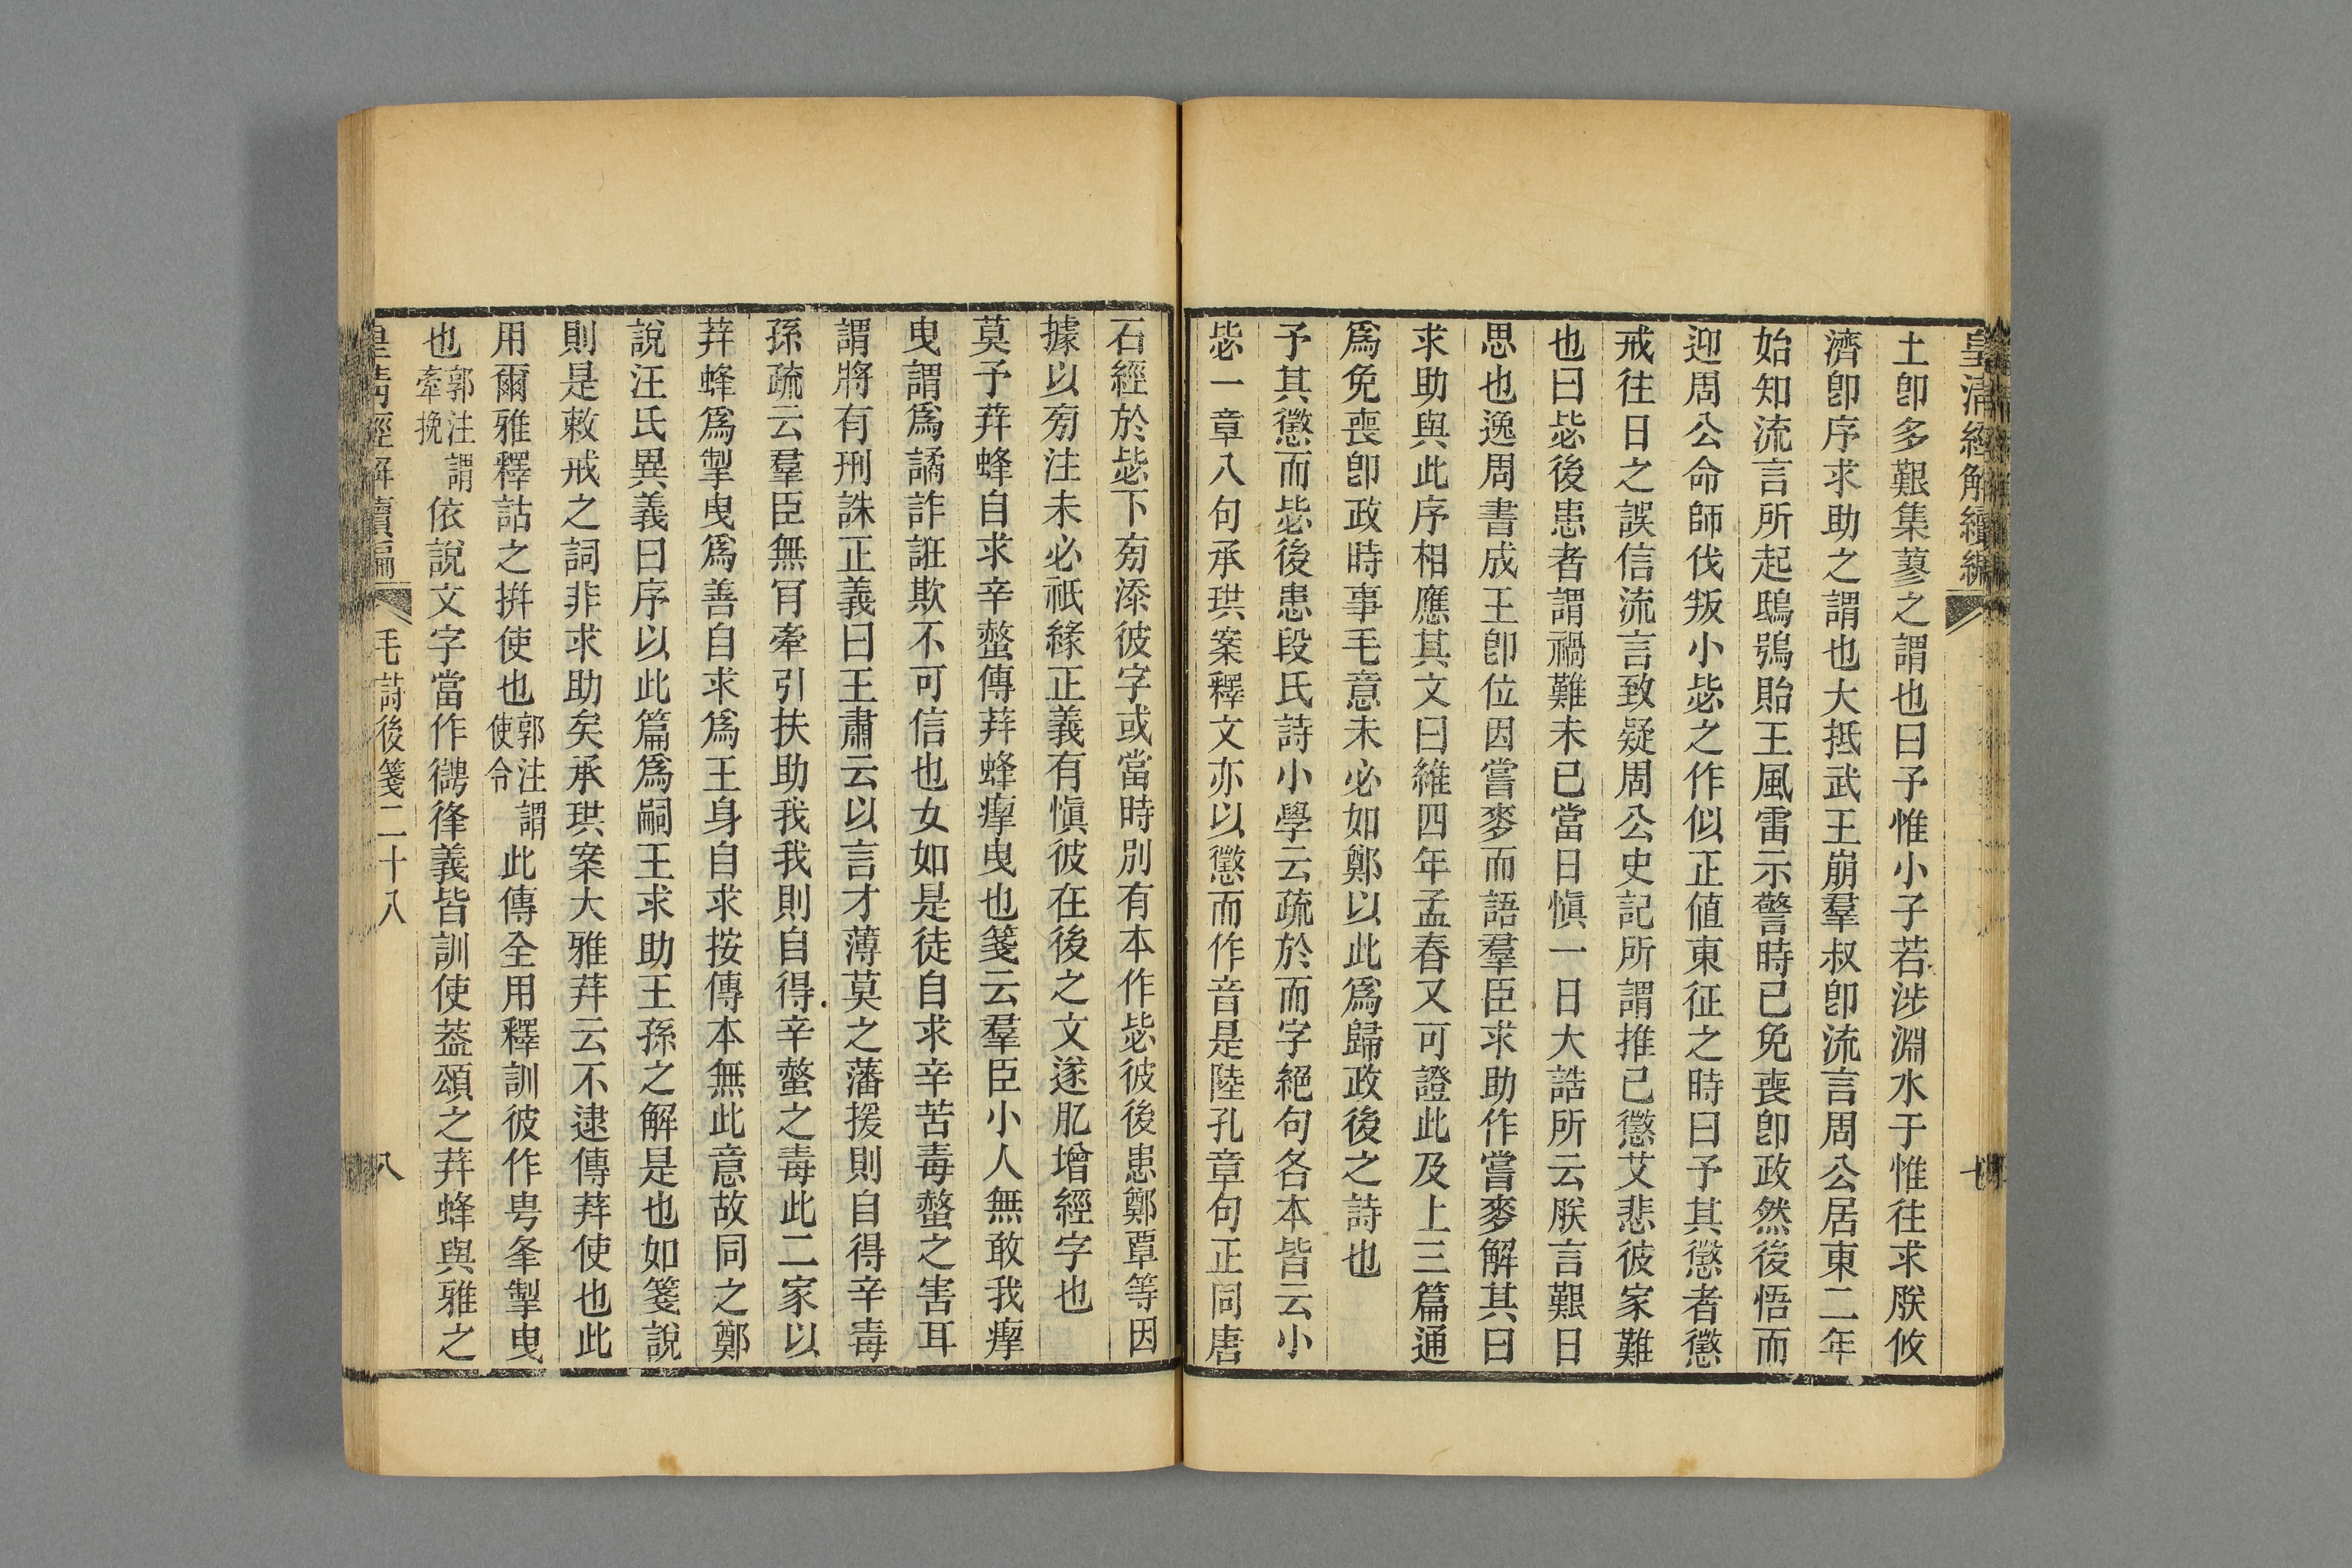 皇清經解續編
土卽多艱集蓼之謂也曰予惟小子若涉淵水于惟往求朕攸
濟卽序求助之謂也大抵武王崩羣叔卽流言周公居東二年
始知流言所起鴟鴞貽王風雷示警時已免喪卽政然後悟而
迎周公命師伐叛小毖之作似正値東征之時曰予其懲者懲
戒往日之誤信流言致疑周公史記所謂推己懲艾悲彼家難
也曰毖後患者謂禍難未已當日愼一日大誥所云朕言艱日
思也逸周書成王卽位因嘗麥而語羣臣求助作嘗麥解其曰
求助與此序相應其文曰維四年孟春又可證此及上三篇通
爲免喪卽政時事毛意未必如鄭以此爲歸政後之詩也
予其懲而毖後患段氏詩小學云疏於而字絕句各本皆云小
毖一章八句承珙案釋文亦以懲而作音是陸孔章句正同唐
石經於毖下㫄添彼字或當時別有本作毖彼後患鄭覃等因
據以㫄注未必祇緣正義有愼彼在後之文遂肊增經字也
莫予荓蜂自求辛螫傳荓蜂㾨曳也箋云羣臣小人無敢我㾨
曳謂爲譎詐誑欺不可信也女如是徒自求辛苦毒螫之害耳
謂將有刑誅正義曰王肅云以言才薄莫之藩援則自得辛毒
孫疏云羣臣無肎牽引扶助我我則自得辛螫之毒此二家以
荓蜂爲掣曳爲善自求爲王身自求按傳本無此意故同之鄭
說汪氏異義曰序以此篇爲嗣王求助王孫之解是也如箋說
則是敕戒之詞非求助矣承珙案大雅荓云不逮傳荓使也此
用爾雅釋詁之拼使也郭注謂使令此傳全用釋訓彼作甹夆掣曳
也郭注謂牽挽依說文字當作德㣭義皆訓使葢頌之荓蜂與雅之
皇淸經解續編
毛詩後箋二十八
八